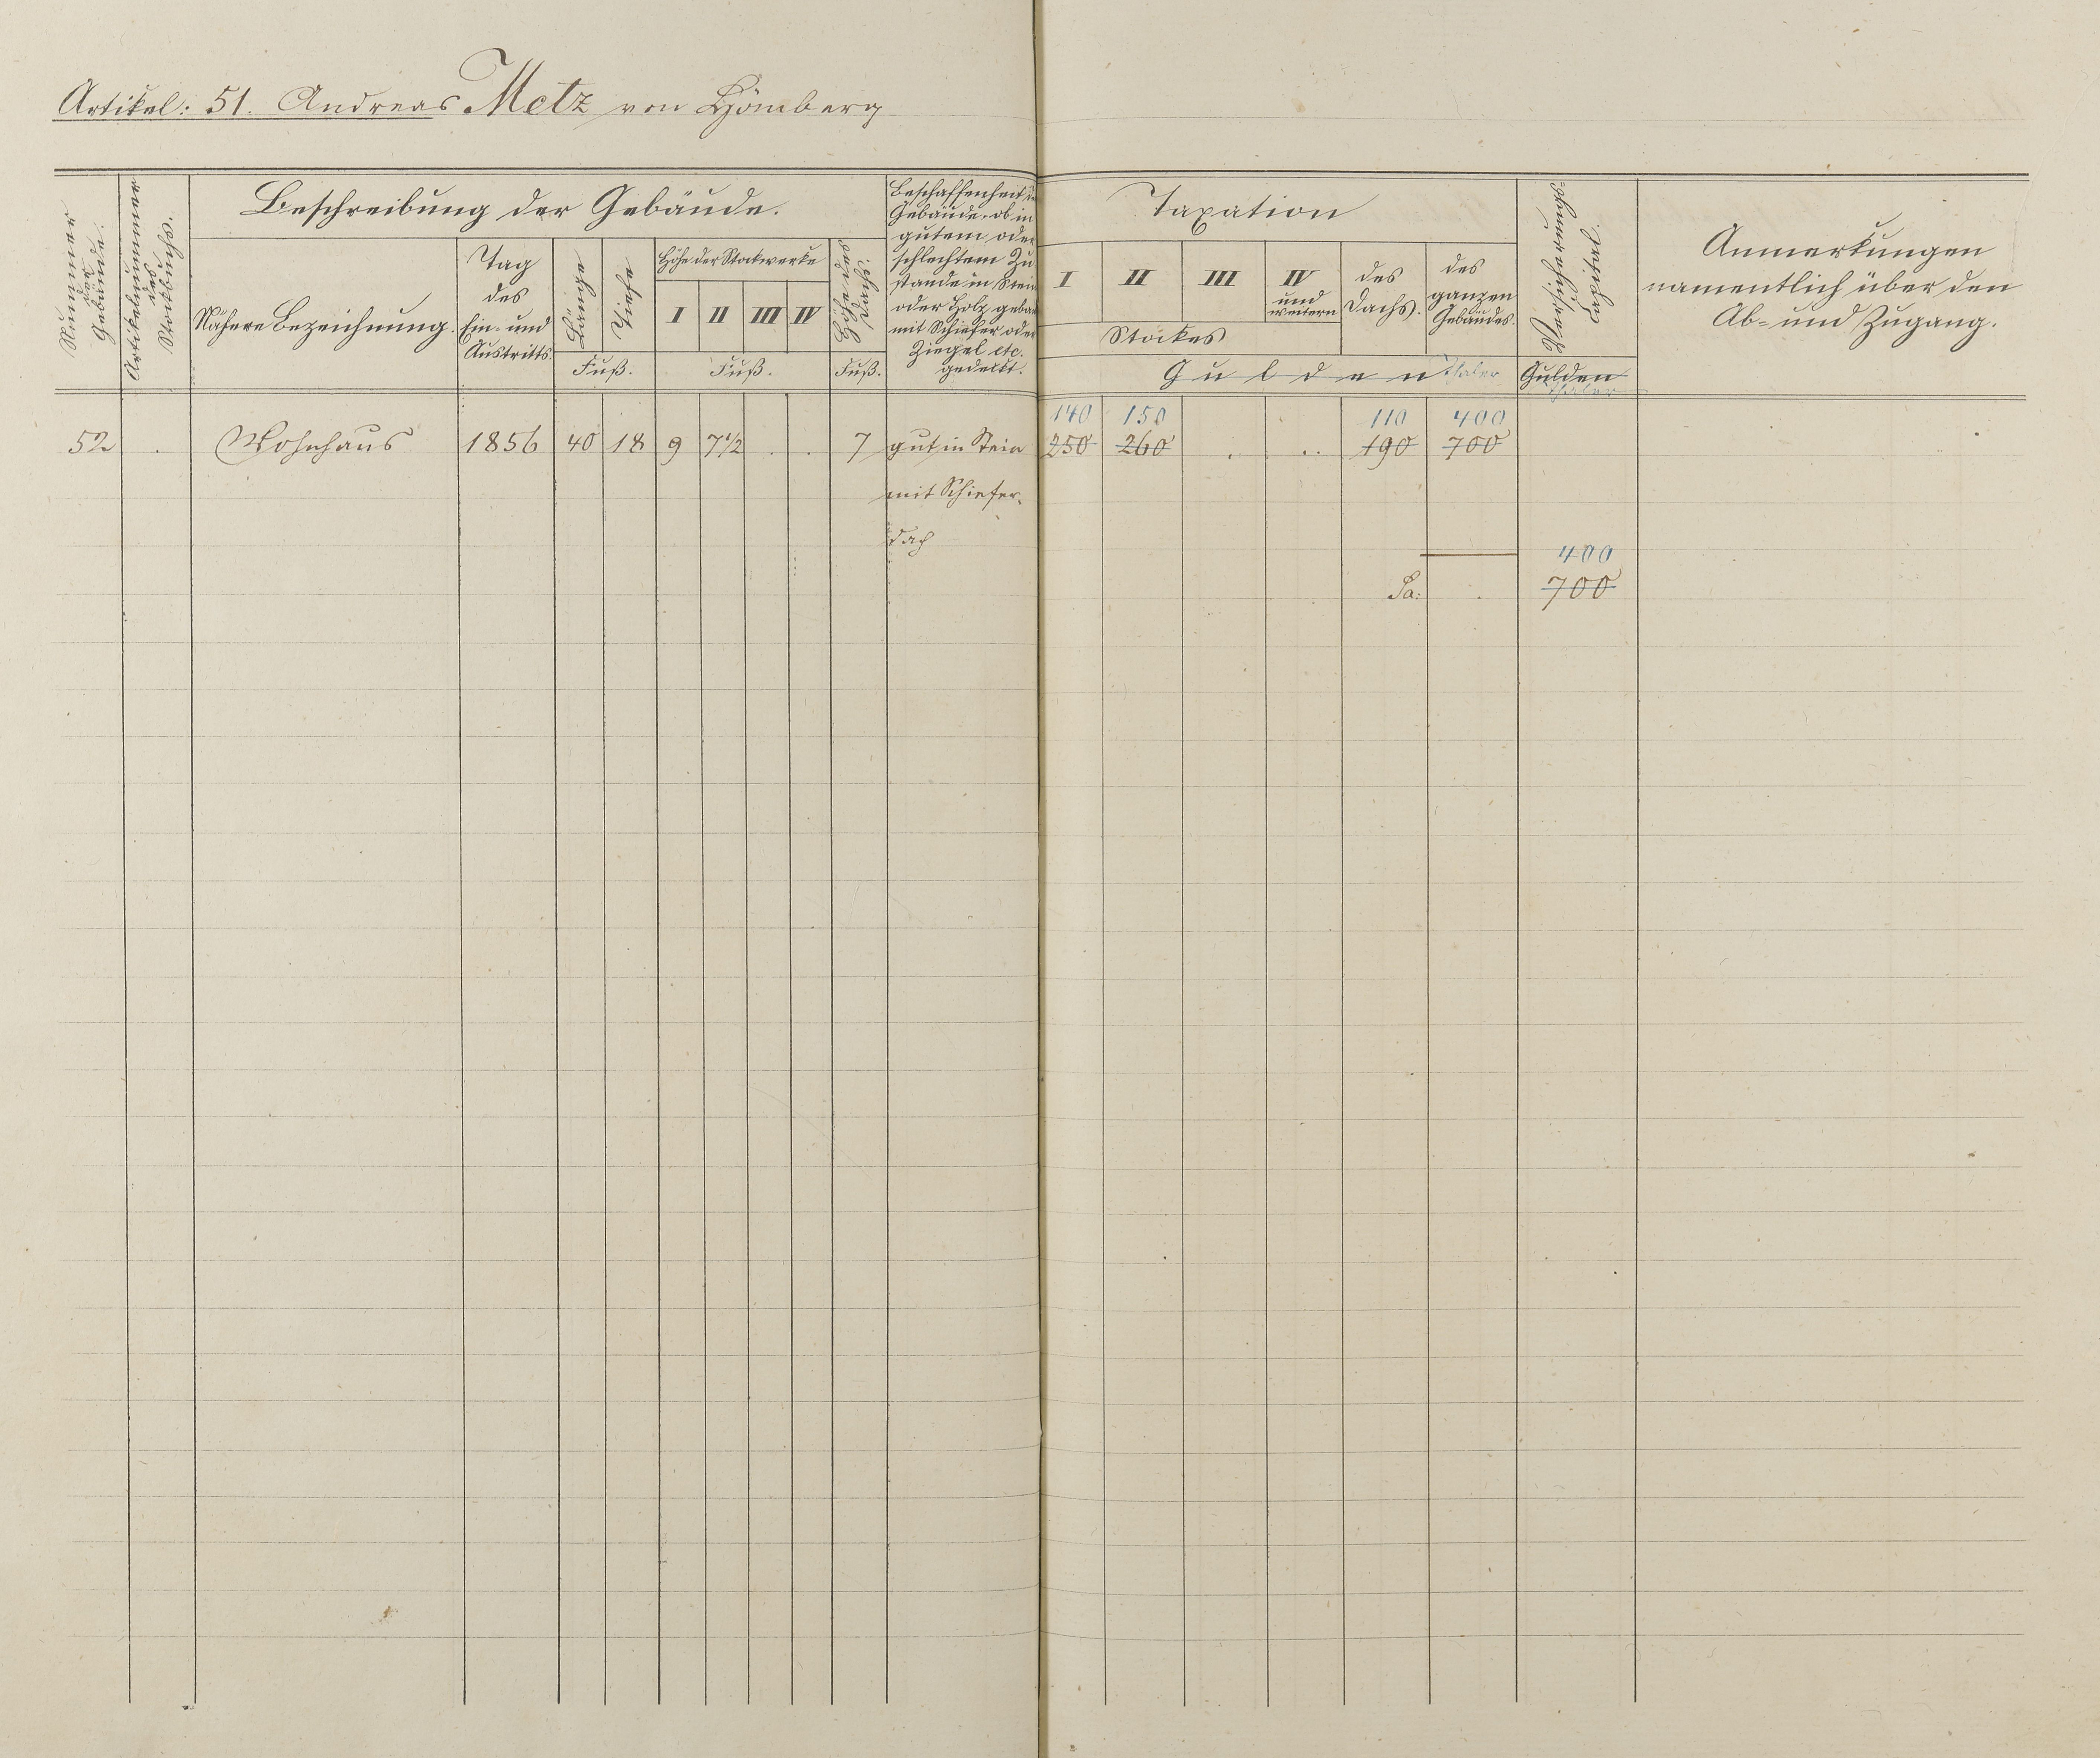 Artikel: 51. Andreas Metz von Hömberg
Nummer der Gebäude.
Artikelnummer des Stockbuchs.
Beschreibung der Gebäude.
Nähere Bezeichnung.
Tag
des
Ein- und
Austritts
Länge
Tiefe
Fuß.
Höhe der Stockwerke
I II III IV
Fuß.
Höhe des Dachs.
Fuß.
Beschaffenheit der
Gebäude, ob in
gutem oder
schlechtem Zu
stande in Stein
oder Holz gebaut
mit Schiefer oder
Ziegel etc.
gedeckt.
Taxation
I II III IV
und
weitern
Stockes
des
Dachs.
des
ganzen
Gebäudes.
Gulden Thaler
Versicherungs
Capital.
Gulden
Thaler
Anmerkungen
namentlich über den
Ab- und Zugang.
140 150 110 400
52 . Wohnhaus 1856 40 18 9 7 1/2 . . 7 gut in Stein 250 260 . .. 190 700
mit Schiefer-
dach
400
Sa: . 700